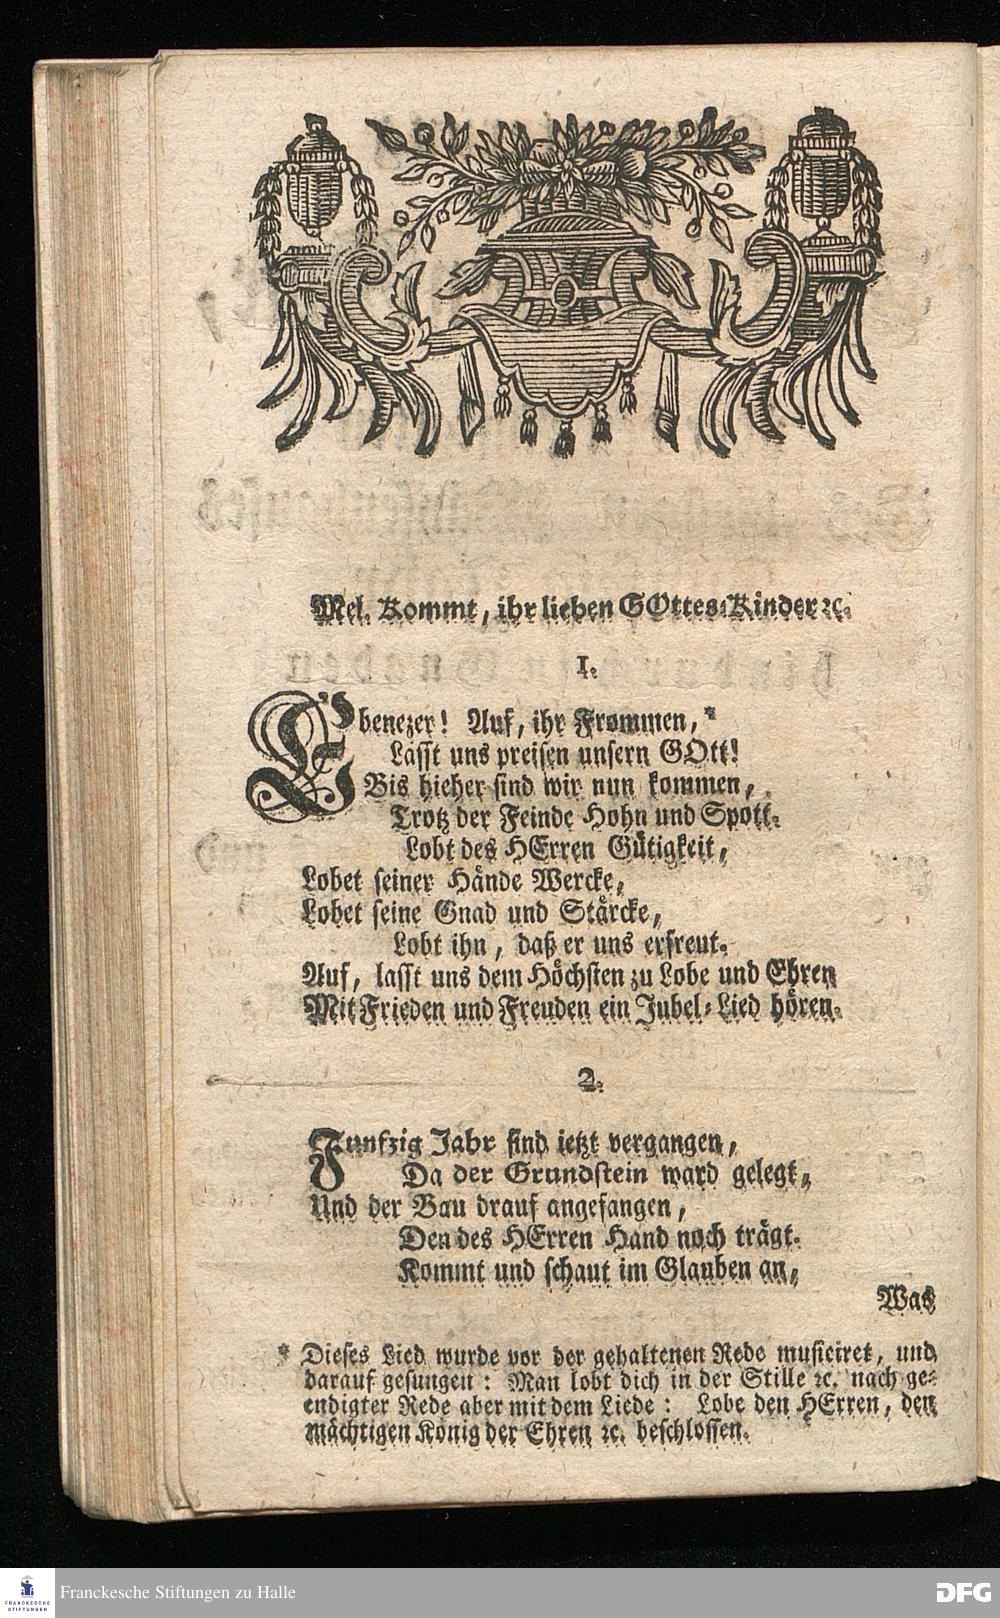 Mel. Kommt, ihr lieben GOttes-Kinder ꝛc.
1.
Ebenezer! Auf, ihr Frommen, *
Lasst uns preisen unsern GOtt!
Bis hieher sind wir nun kommen,
Trotz der Feinde Hohn und Spott.
Lobt des HErren Gütigkeit,
Lobet seiner Hände Wercke,
Lobet seine Gnad und Stärcke,
Lobt ihn, daß er uns erfreut.
Auf, lasst uns dem Höchsten zu Lobe und Ehren
Mit Frieden und Freuden ein Jubel-Lied hören.
2.
Funfzig Jahr sind ietzt vergangen,
Da der Grundstein ward gelegt,
Und der Bau drauf angefangen,
Den des HErren Hand noch trägt.
Kommt und schaut im Glauben an,
Was
* Dieses Lied wurde vor der gehaltenen Rede musiciret, und
darauf gesungen: Man lobt dich in der Stille ꝛc. nach ge-
endigter Rede aber mit dem Liede: Lobe den HErren, den
mächtigen König der Ehren ꝛc. beschlossen.
FRANCKESCHE
STIFTUNGEN
Franckesche Stiftungen zu Halle
DFG